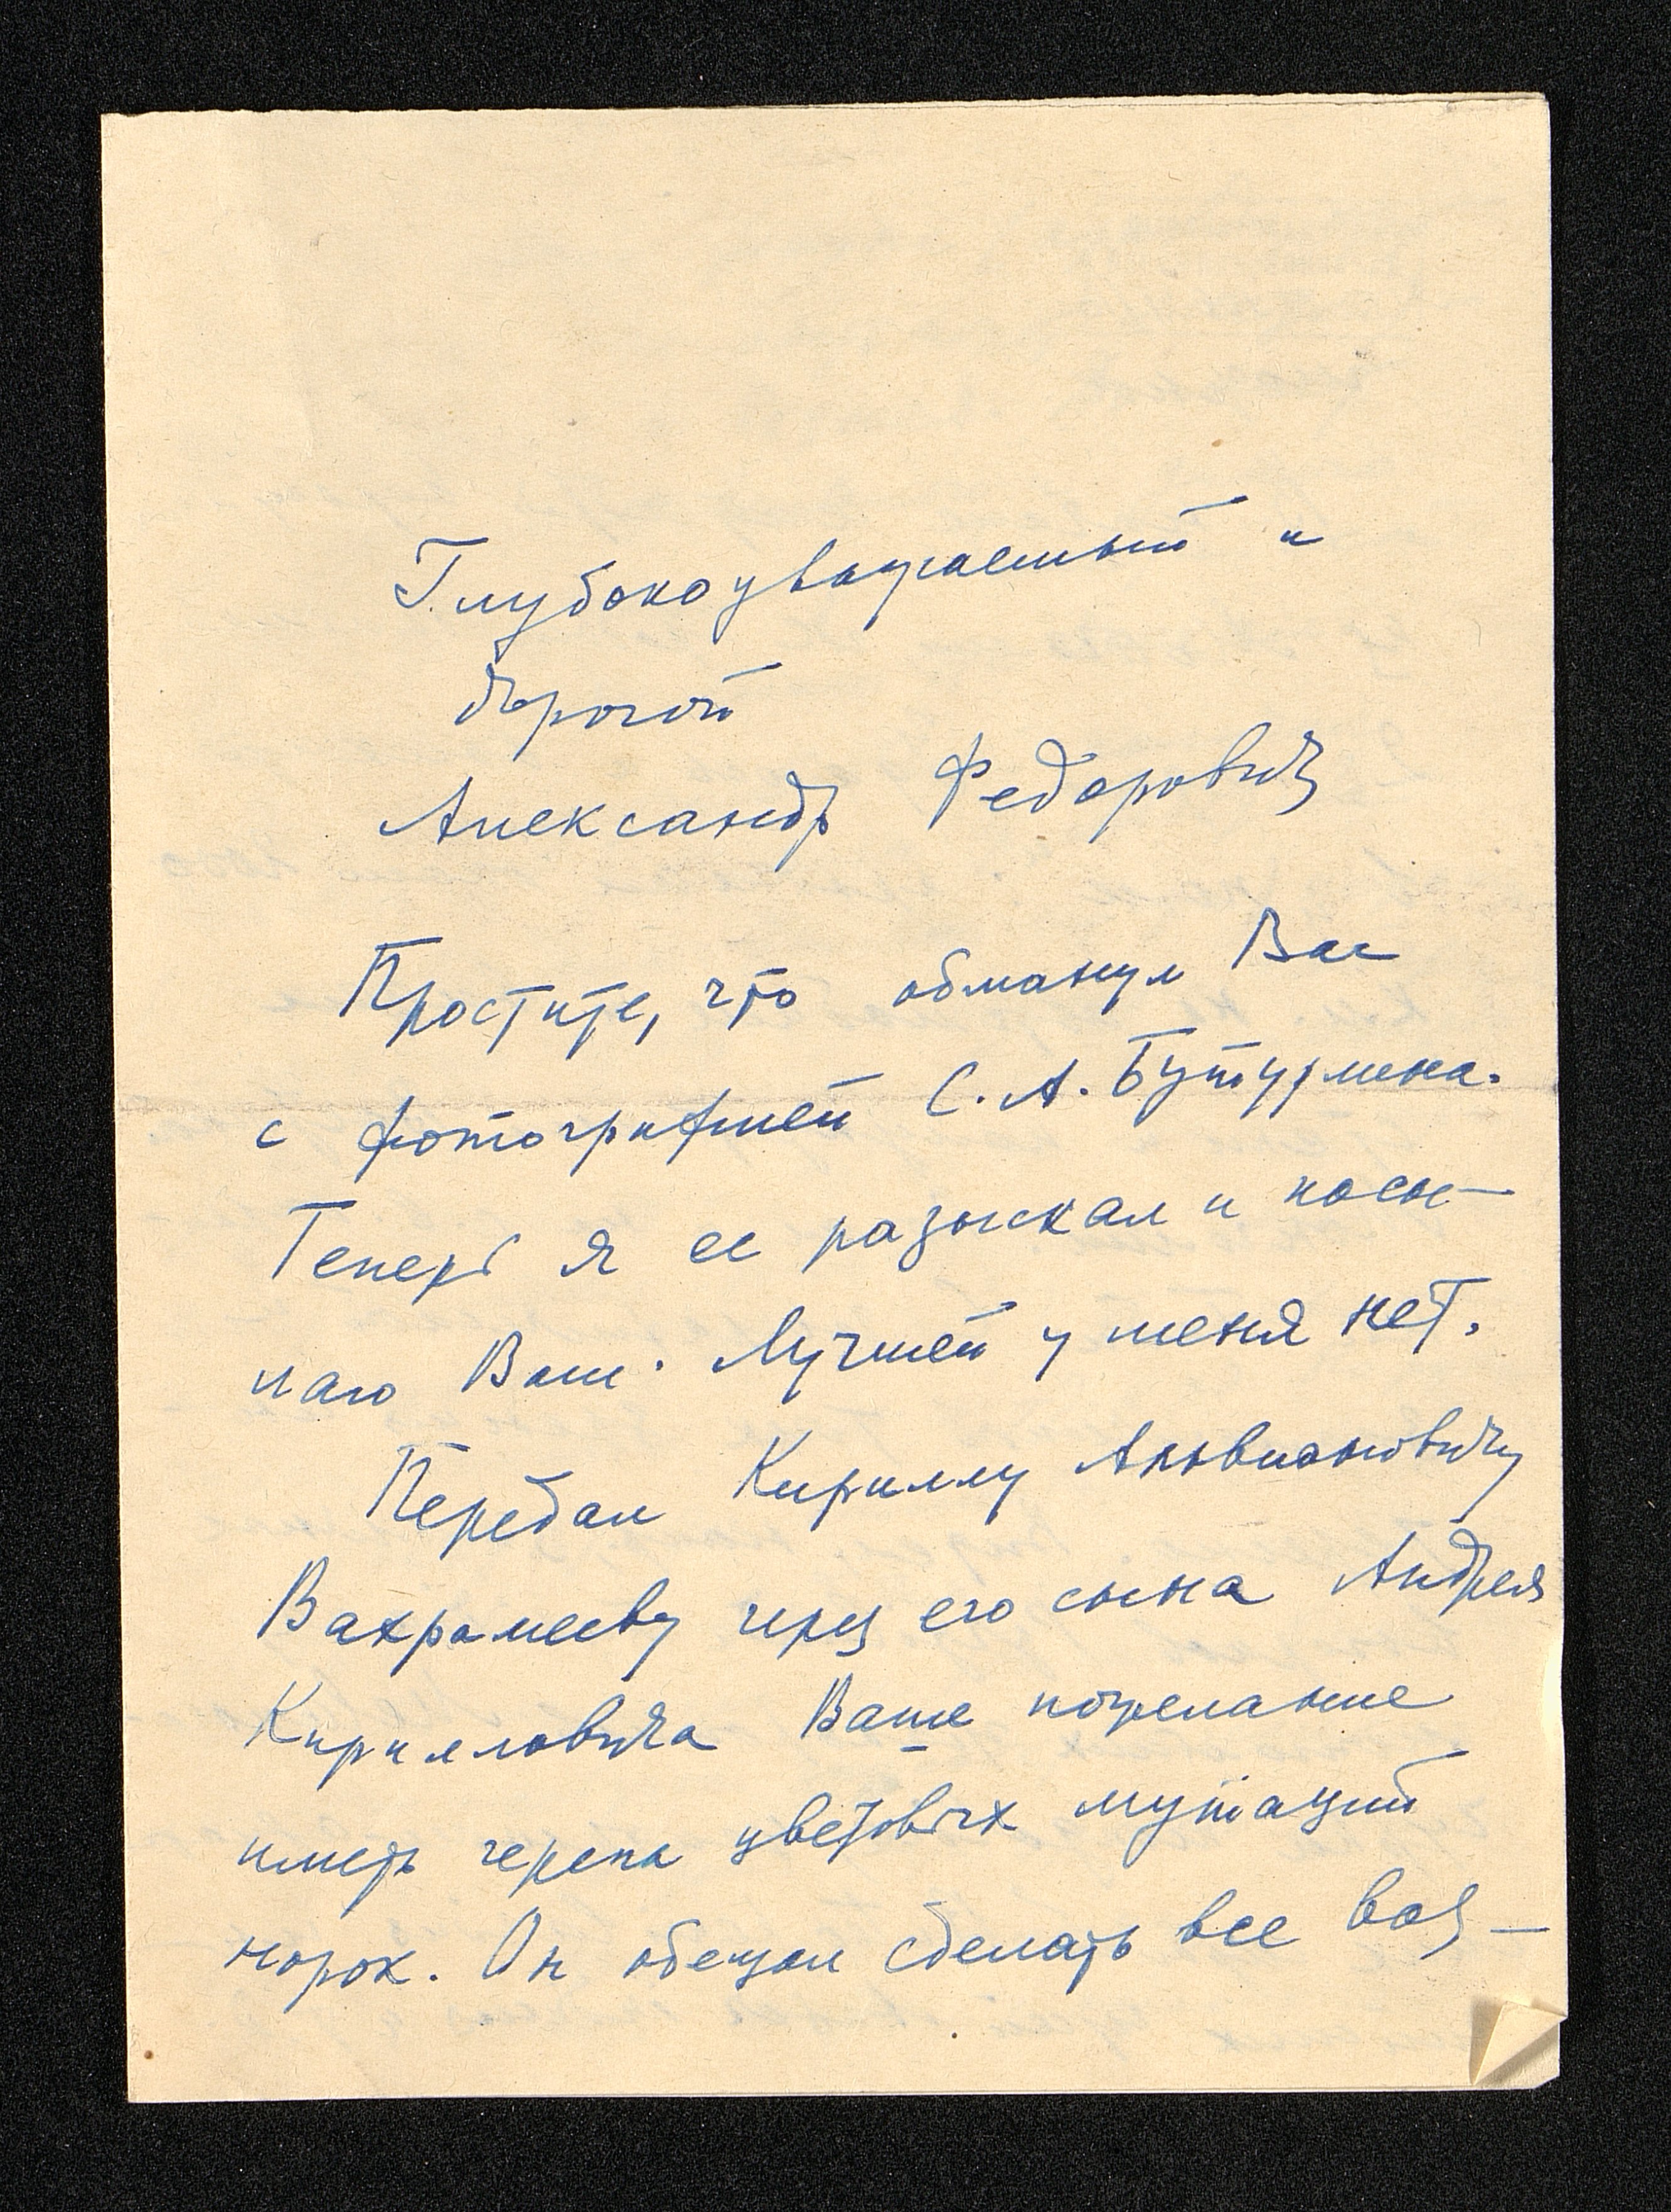 Глубокоуважаемый и
дорогой
Александр Федорович
Простите, что обманул Вас
с фотографией С. А. Бутурлина.
Теперь я ее разыскал и посы-
лаю Вам. Лучшей у меня нет.
Передал Кириллу Альвиановичу
Вахрамееву через его сына Андрея
Кирилловича Ваше пожелание
иметь черепа цветовых мутаций
норок. Он обещал сделать все воз-